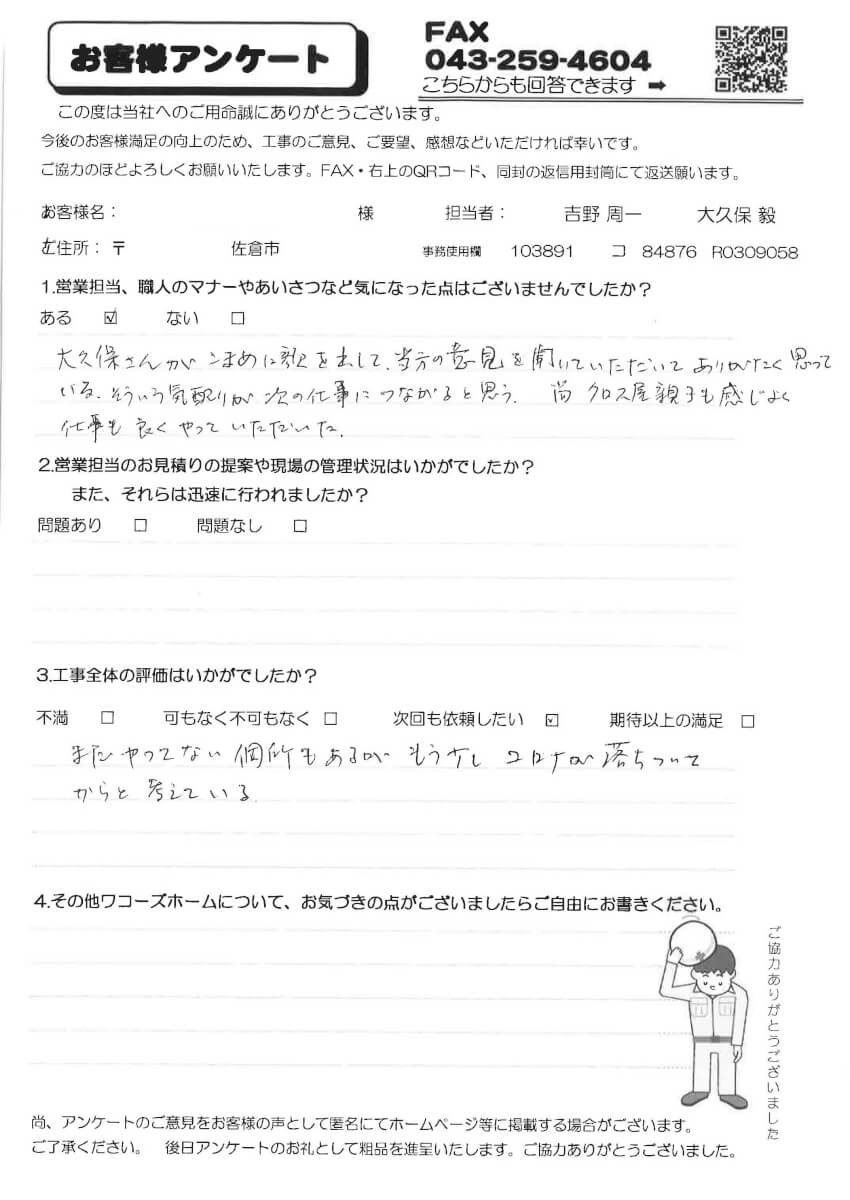 お客様アンケート
FAX
043-259-4604
こちらからも回答できます ➡
この度は当社へのご用命誠にありがとうございます。
今後のお客様満足の向上のため、工事のご意見、ご要望、感想などいただければ幸いです。
ご協力のほどよろしくお願いいたします。FAX・右上のQRコード、同封の返信用封筒にて返送願います。
お客様名： 様 担当者： 吉野 周一 大久保 毅
ご住所：〒 佐倉市 事務使用欄 103891 コ 84876 R0309058
1.営業担当、職人のマナーやあいさつなど気になった点はございませんでしたか？
ある ☑ ない □
大久保さんが こまめに顔を出して、当方の意見を聞いていただいて ありがたく思って
いる。そういう気配りが次の仕事につながると思う。 尚 クロス屋親子も感じよく
仕事も良くやっていただいた。
2.営業担当のお見積りの提案や現場の管理状況はいかがでしたか？
また、それらは迅速に行われましたか？
問題あり □ 問題なし □
3.工事全体の評価はいかがでしたか？
不満 □ 可もなく不可もなく □ 次回も依頼したい ☑ 期待以上の満足 □
まだやってない個所もあるが もう少し コロナが落ちついて
からと考えている。
4.その他ワコーズホームについて、お気づきの点がございましたらご自由にお書きください。
ご協力ありがとうございました
尚、アンケートのご意見をお客様の声として匿名にてホームページ等に掲載する場合がございます。
ご了承ください。 後日アンケートのお礼として粗品を進呈いたします。ご協力ありがとうございました。